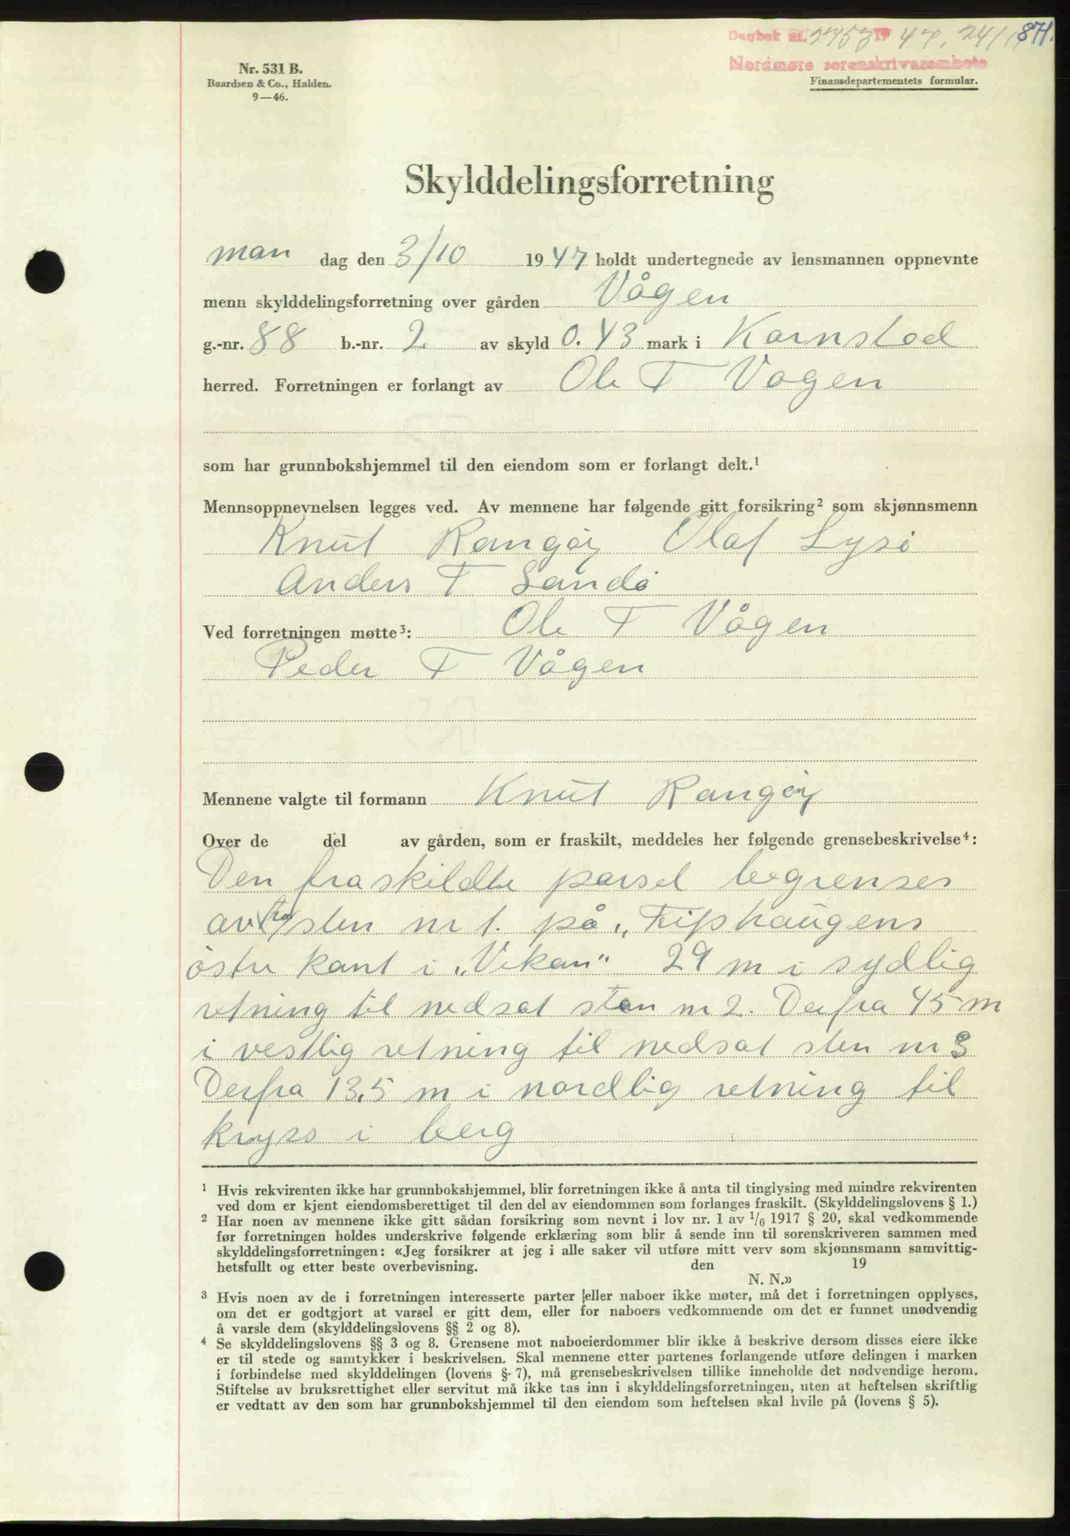 Dagbok nr. 2753 1947. 24/11 871.
Nordmøre sorenskriverembete
Nr. 531 B.
Baardsen & Co., Halden.
9—46.
Finansdepartementets formular.
Skylddelingsforretning
man dag den 3/10 1947 holdt undertegnede av lensmannen oppnevnte
menn skylddelingsforretning over gården Vågen
g.-nr. 88 b.-nr. 2 av skyld 0.43 mark i Kornstad
herred. Forretningen er forlangt av Ole T Vågen
som har grunnbokshjemmel til den eiendom som er forlangt delt.¹
Mennsoppnevnelsen legges ved. Av mennene har følgende gitt forsikring² som skjønnsmenn
Knut Rangøy Olaf Lysö
Anders F Sandö
Ved forretningen møtte³: Ole T Vågen
Peder T Vågen
Mennene valgte til formann Knut Rangøy
Over de del av gården, som er fraskilt, meddeles her følgende grensebeskrivelse⁴:
Den fraskildte parsel begrenses
av fra sten nr 1. på „Fipshaugens
östre kant i „Vikan" 29 m i sydlig
retning til nedsat sten nr 2. Derfra 45 m
i vestlig retning til nedsat sten nr 3
Derfra 13,5 m i nordlig retning til
kryss i berg
¹ Hvis rekvirenten ikke har grunnbokshjemmel, blir forretningen ikke å anta til tinglysing med mindre rekvirenten
ved dom er kjent eiendomsberettiget til den del av eiendommen som forlanges fraskilt. (Skylddelingslovens § 1.)
² Har noen av mennene ikke gitt sådan forsikring som nevnt i lov nr. 1 av 1/6 1917 § 20, skal vedkommende
før forretningen holdes underskrive følgende erklæring som blir å sende inn til sorenskriveren sammen med
skylddelingsforretningen: «Jeg forsikrer at jeg i alle saker vil utføre mitt verv som skjønnsmann samvittig-
hetsfullt og etter beste overbevisning. den 19
N. N.»
³ Hvis noen av de i forretningen interesserte parter eller naboer ikke møter, må det i forretningen opplyses,
om det er godtgjort at varsel er gitt dem, eller for naboers vedkommende om det er funnet unødvendig
å varsle dem (skylddelingslovens §§ 2 og 8).
⁴ Se skylddelingslovens §§ 3 og 8. Grensene mot naboeierdommer blir ikke å beskrive dersom disses eiere ikke
er til stede og samtykker i beskrivelsen. Skal mennene etter partenes forlangende utføre delingen i marken
i forbindelse med skylddelingen (lovens § 7), må grensebeskrivelsen tillike inneholde det nødvendige herom.
Stiftelse av bruksrettighet eller servitut må ikke tas inn i skylddelingsforretningen, uten at heftelsen skriftlig
er vedtatt av den som har grunnbokshjemmel til den eiendom som heftelsen skal hvile på (lovens § 5).